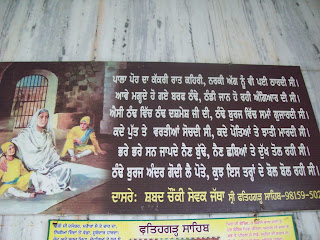 ਪਾਲਾ ਪੋਹ ਦਾ ਕੱਕਰੀ ਰਾਤ ਕਹਿਰੀ, ਨਰਕੀ ਅੰਗ ਨੂੰ ਵੀ ਪਈ ਠਾਰਦੀ ਸੀ।
ਆਵੇ ਮਗ਼ਦੇ ਹੋ ਗਏ ਬਰਫ ਠੰਢੇ, ਠੰਡੀ ਜਾਨ ਹੋ ਰਹੀ ਅੰਗਿਆਰ ਦੀ ਸੀ।
ਐਸੀ ਠੰਢ ਵਿੱਚ ਠੰਢ ਦਸ਼ਮੇਸ਼ ਜੀ ਦੀ, ਠੰਢੇ ਬੁਰਜ ਵਿੱਚ ਸਮਾਂ ਗੁਜਾਰਦੀ ਸੀ।
ਕਦੇ ਪੁੱਤ ਤੇ ਵਰਤੀਆਂ ਸੋਚਦੀ ਸੀ, ਕਦੇ ਪੋਤਿਆਂ ਤੇ ਝਾਤੀ ਮਾਰਦੀ ਸੀ।
ਭਰੇ ਭਰੇ ਸਨ ਜਾਪਦੇ ਨੈਣ ਡੁੱਬੇ, ਨੈਣ ਛੱਬਿਆਂ ਤੇ ਦੁੱਖ ਤੋਲ ਰਹੀ ਸੀ।
ਠੰਢੇ ਬੁਰਜ ਅੰਦਰ ਗੋਦੀ ਲੈ ਪੋਤੇ, ਕੁਝ ਇਸ ਤਰ੍ਹਾਂ ਦੇ ਬੋਲ ਬੋਲ ਰਹੀ ਸੀ।
ਦਾਸਰੇ: ਸ਼ਬਦ ਚੌਂਕੀ ਸੇਵਕ ਜੱਥਾ ਸ੍ਰੀ ਫਤਿਹਗੜ੍ਹ ਸਾਹਿਬ-98159-502
ਫਤਿਹਗੜ੍ਹ ਸਾਹਿਬ